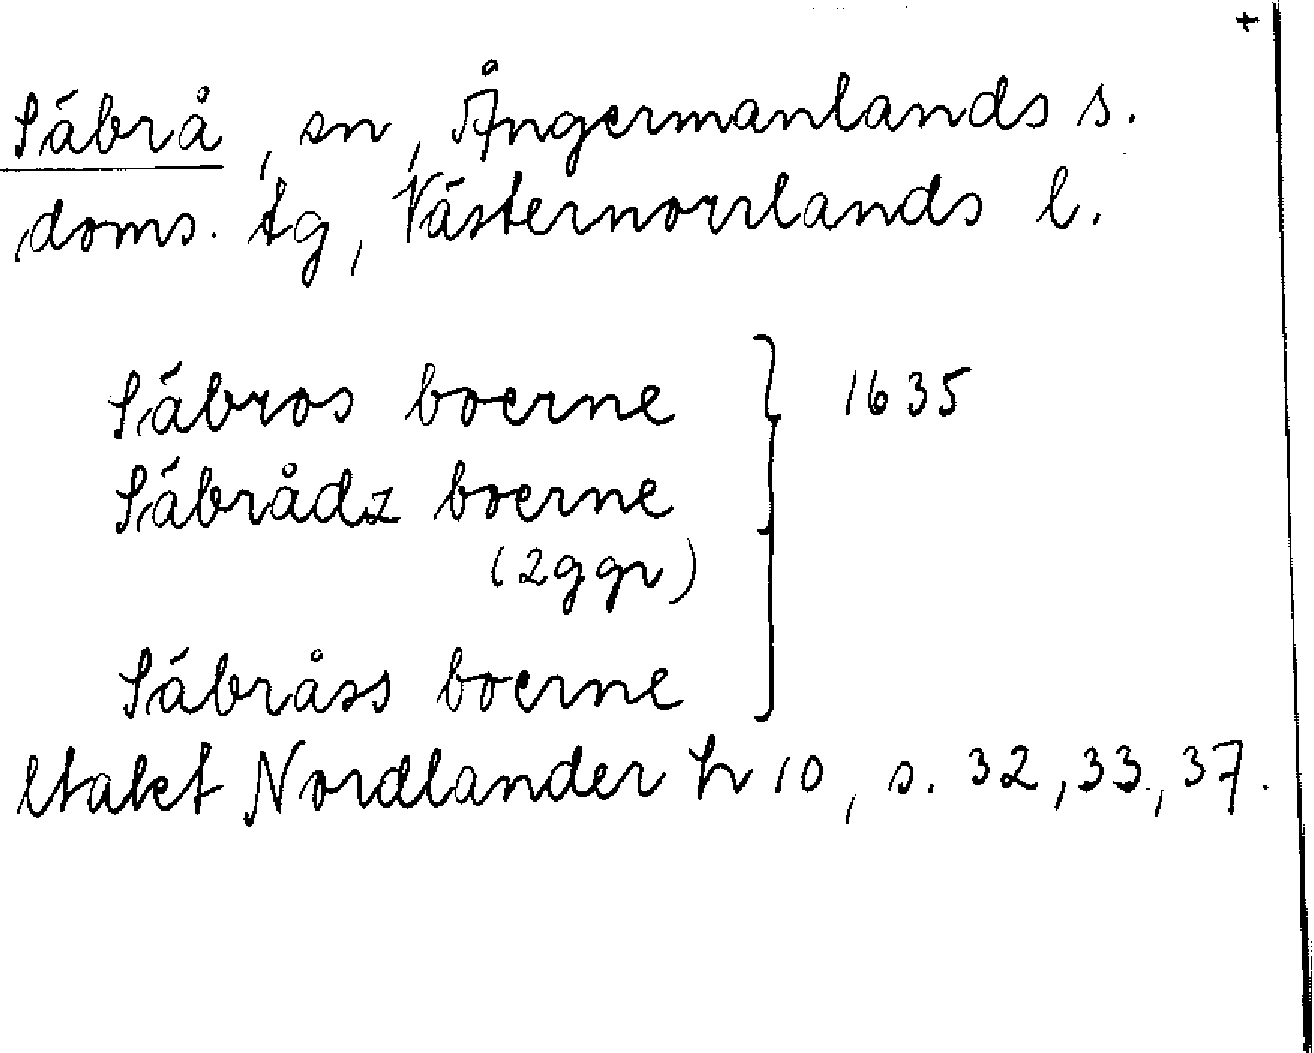 +
Säbrå, sn, Ångermanlands s.
doms. tg, Västernorrlands l.
Säbros boerne } 1635
Säbrådz boerne
(2 ggr)
Säbråss boerne
Utakt Nordlander h 10, s. 32, 33, 37.